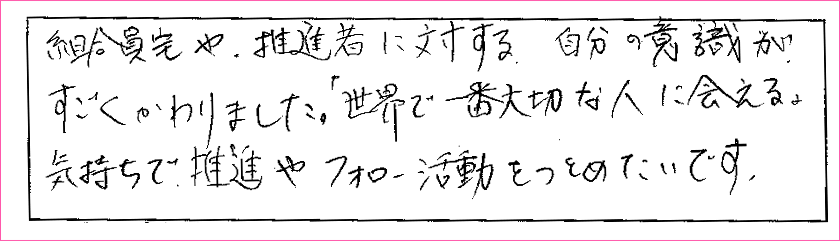 組合員宅や、推進者に対する 自分の意識が
すごくかわりました。「世界で一番大切な人に会える」
気持ちで、推進やフォロー活動をつとめたいです。